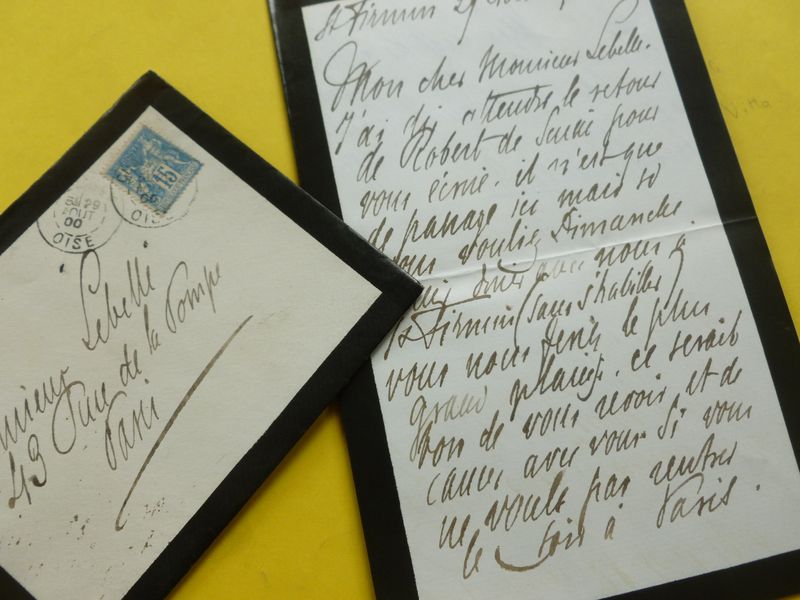 St Firmin 29
Mon cher Monsieur Lebelle.
J'ai dû attendre le retour
de Robert de pour
vous écrire. il n'est que
de passage ici mais si
vous vouliez Dimanche.
diner avec nous à
St Firmin (sans s'habiller)
vous nous feriez le plus
grand plaisir. ce serait
bon de vous revoir et de
causer avec vous si vous
ne voulez pas rentrer
le soir à Paris.
15
29
AOUT
00
OISE
OISE
Monsieur Lebelle
49 Rue de la Pompe
Paris
Villa